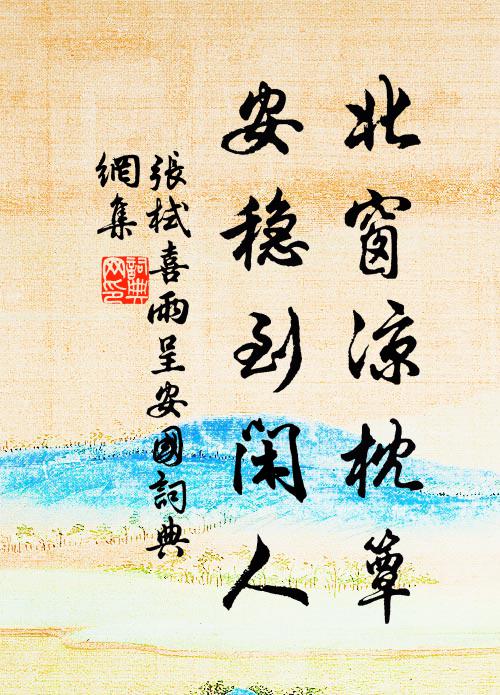 北窗涼枕簟
安穏到闲人
張栻喜雨呈安國詞典
網集
詞典
网印